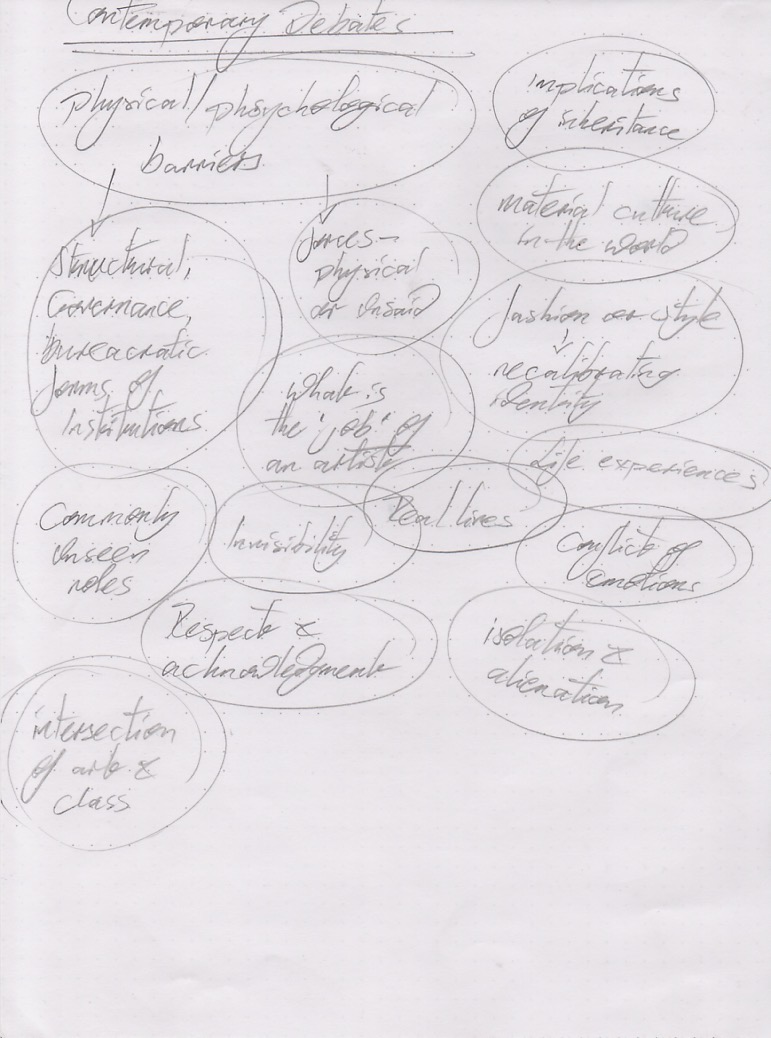 Contemporary Debates
physical/phsychological
barriers
implications
of inheritance
material culture
in the world
Structural,
Governance,
bureacratic
forms of
Institutions
forces –
physical
or unsaid
fashion or style
recalibrating
identity
what is
the 'job' of
an artist
Life experiences
Commonly
unseen
roles
Invisibility
Real lives
conflict of
emotions
Respect &
acknowledgment
isolation &
alienation
intersection
of art &
class